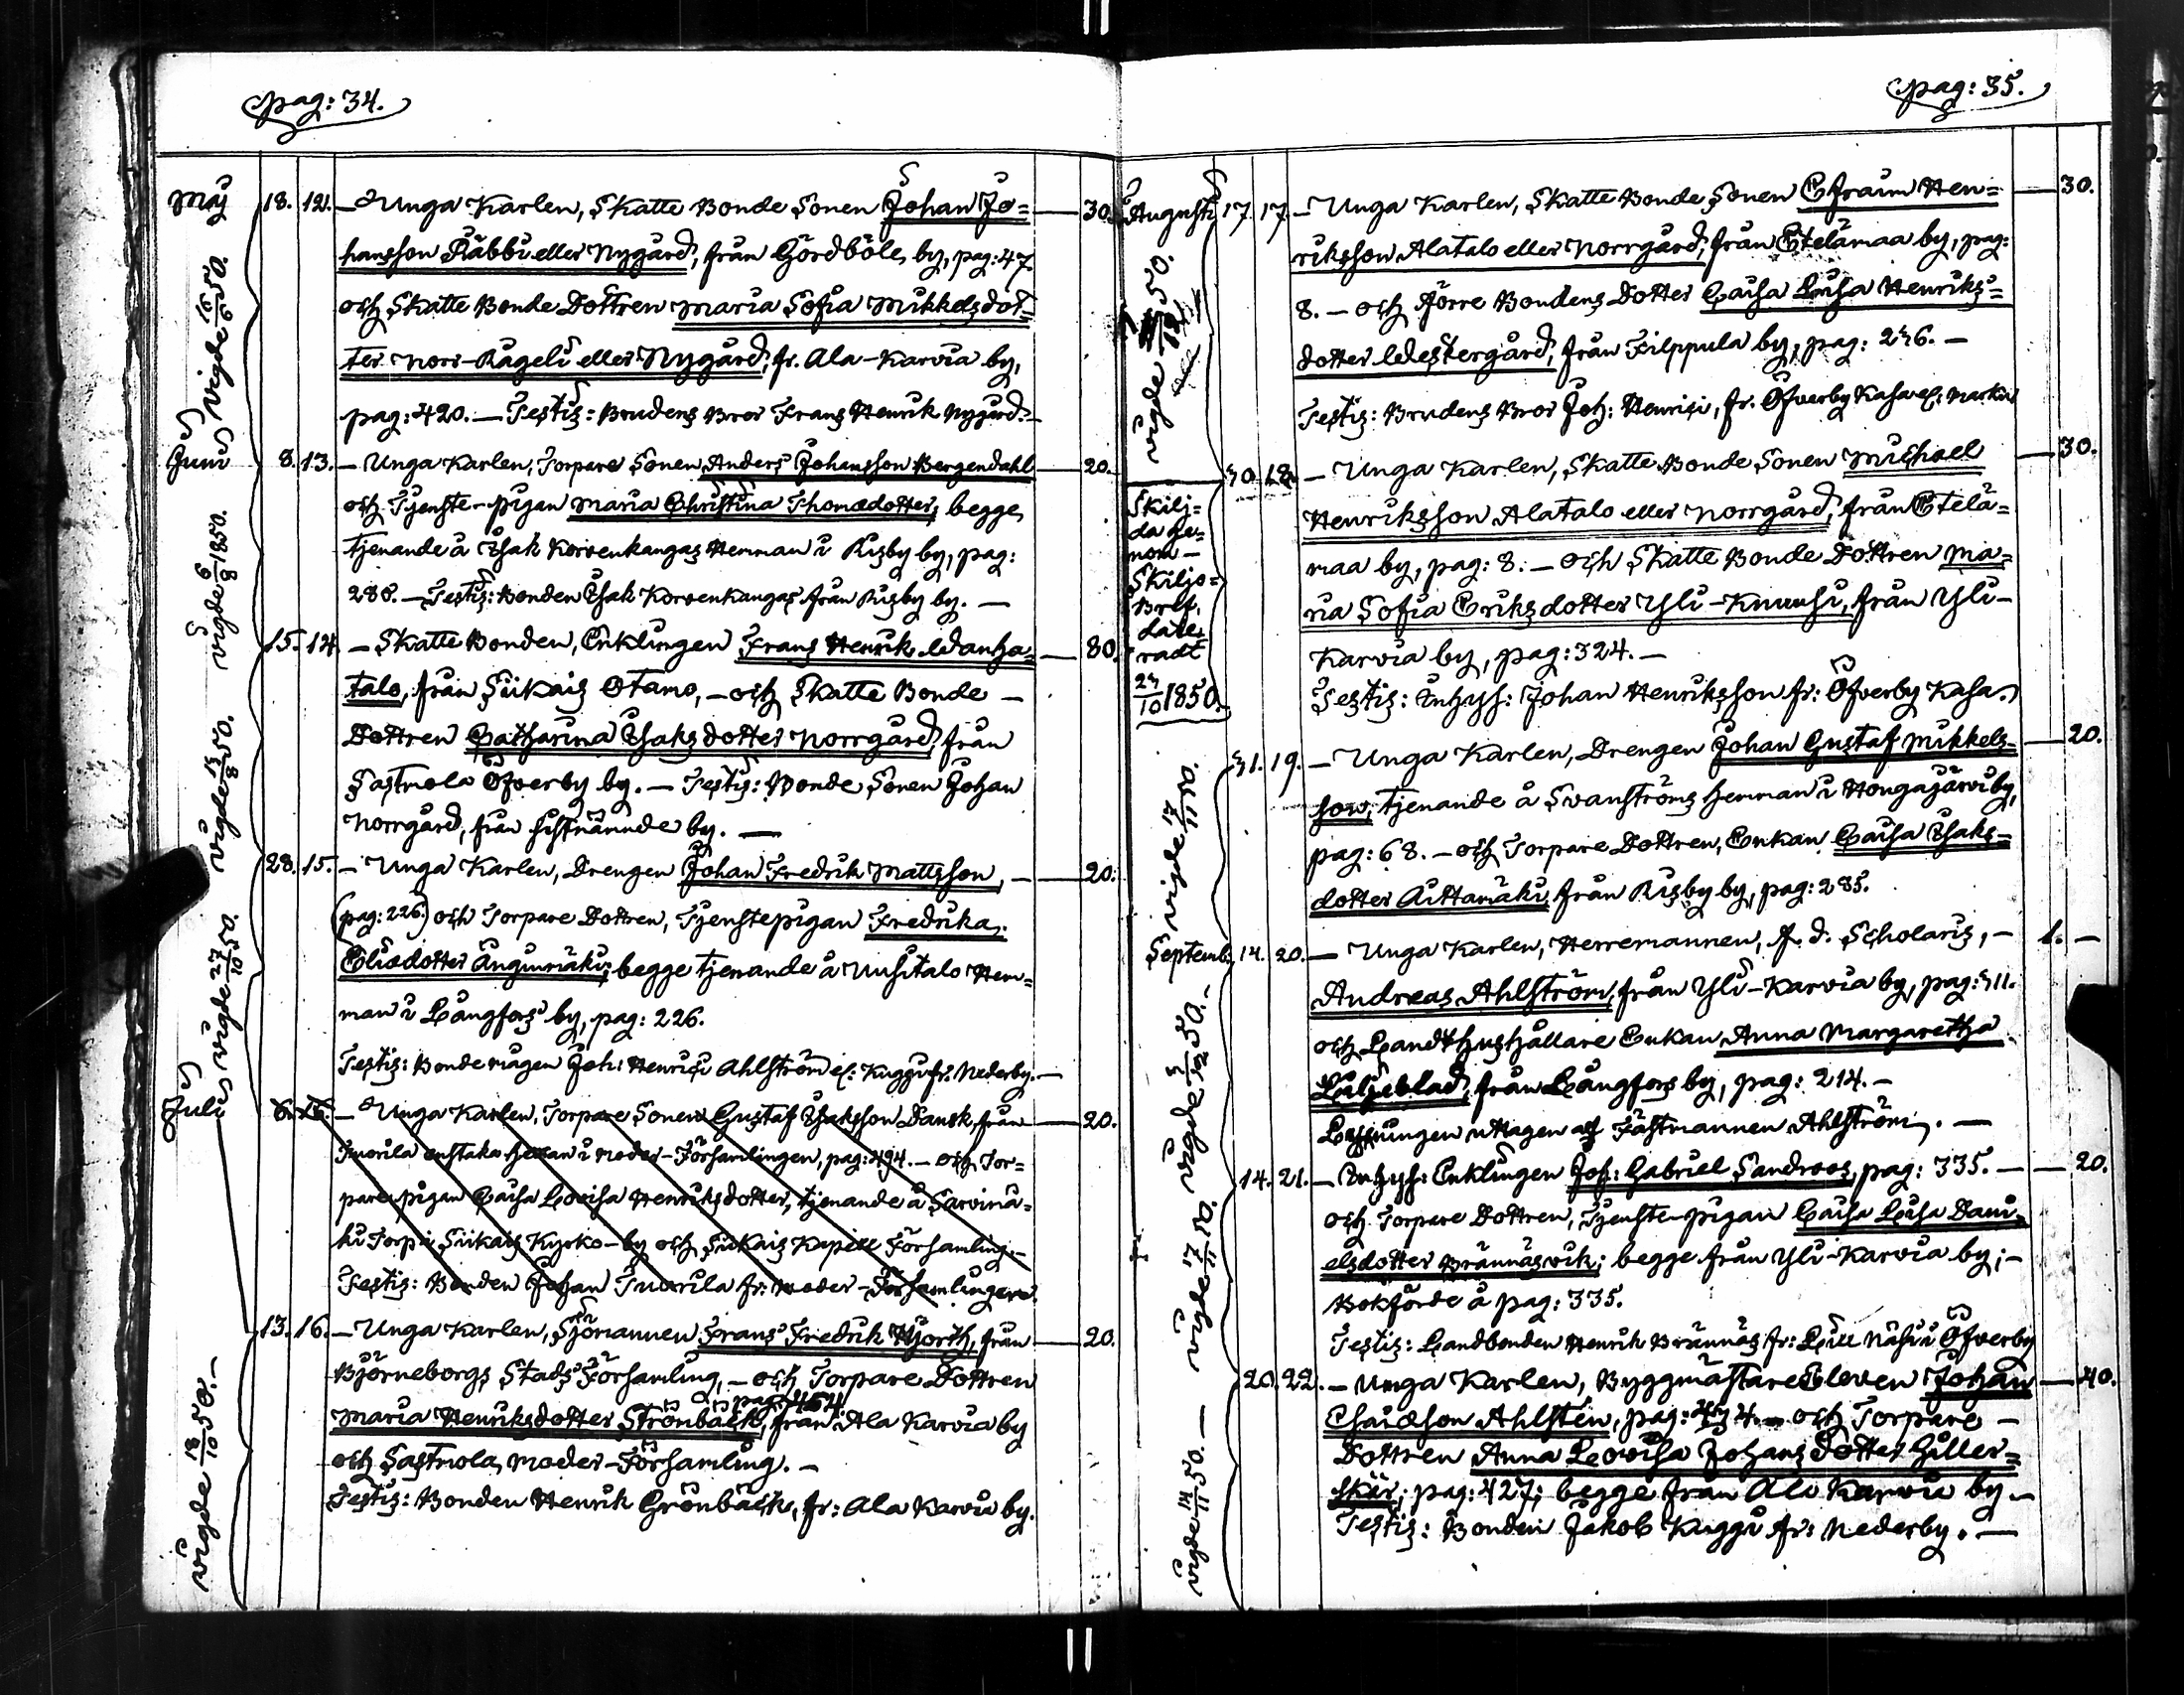 pag: 34.
Maj 18. 12. — Unga Karlen, Skatte Bonde Sonen Johan Jo= — 30.
hansson Räbbi eller Nygård, från Gördböle by, pag: 47.
och Skatte Bonde Dottren Maria Sofia Mikkelsdot=
ter Norr-Kageli eller Nygård, fr. Ala-Karvia by,
pag: 420. — Testis: Brudens Bror Frans Henrik Nygård.—
vigde 16/6 50.
Juni 8. 13. — Unga Karlen, Torpare Sonen Anders Johansson Bergendahl — 20.
och Tjenste-pigan Maria Christina Thomædotter, begge
tjenande å Isak Korvenkangas Hemman i Kisby by, pag:
286. — Testis: Bonden Isak Korvenkangas från Kisby by. —
vigde 6/8 1850.
15. 14. — Skatte Bonden, Enklingen Frans Henrik Wanha= — 80.
talo, från Siikais Otamo, — och Skatte Bonde —
Dottren Catharina Isaks dotter Norrgård, från
Sastmola Öfverby by. — Testis: Bonde Sonen Johan
Norrgård, från sistnämnde by. —
vigde 15/8 50.
23. 15. — Unga Karlen, Drengen Johan Fredrik Mattsson, — 20.
(pag: 226.) och Torpare Dottren, Tjenstepigan Fredrika
Eliædotter Änginmäki; begge tjenande å Uusitalo Hem=
man i Långfors by, pag: 226.
Testis: Bondemågen Joh: Henrici Ahlström el. Kuggi fr. Nederby. —
vigde 27/10 50.
Juli 6. 16. — Unga Karlen, Torpare Sonen Gustaf Isaksson Dansk, från — 20.
Tuorila enstaka Heman i Moder-Församlingen, pag: 494. — och Tor=
pare pigan Caisa Lovisa Henriksdotter, tjenande å Sarvimä=
ki Torp i Siikais Kyrko-by och Siikais Kapell Församling. —
Testis: Bonden Johan Tuorila fr: Moder-Församlingen.
13. 16. — Unga Karlen, Sjömannen Frans Fredrik Hjorth, från — 20.
Björneborgs Stads Församling, — och Torpare Dottren
pag: 464.
Maria Henriksdotter Strömbäck, från Ala Karvia by
och Sastmola Moder-Församling. —
Testis: Bonden Henrik Grönbäck, fr: Ala Karvia by.
vigde 18/10 50. —
pag: 35.
Augusti 17. 17. — Unga Karlen, Skatte Bonde Sonen Efraim Hen= — 30.
riksson Alatalo eller Norrgård, från Etelämaa by, pag:
8. — och Förre Bondens Dotter Caisa Lisa Henriks=
dotter Westergård, från Filppula by, pag: 246. —
Testis: Brudens Bror Joh: Henrici, fr. Öfverby Kasa
vigde 50.
30. 18. — Unga Karlen, Skatte Bonde Sonen Michael — 30.
Henriksson Alatalo eller Norrgård, från Etelä=
maa by, pag: 8. — och Skatte Bonde Dottren Ma=
ria Sofia Eriks dotter Yli-Knuusi, från Yli-
Karvia by, pag: 324. —
Testis: Inhys: Johan Henriksson fr: Öfverby Kasa.
Skilj=
da ge=
nom —
Skiljo=
Bref,
date=
radt
24/10 1850.
31. 19. — Unga Karlen, Drengen Johan Gustaf Mikkels= — 20.
son, tjenande å Svanströms Hemman i Hongajärvi by,
pag: 68. — och Torpare Dottren, Enkan Caisa Isaks=
dotter Aittamäki från Kisby by, pag: 285.
vigde 17/11 50.
Septemb. 14. 20. — Unga Karlen, Herremannen, f. d. Scholaris, — 1. —
Andreas Ahlström, från Yli-Karvia by, pag: 311.
och Landthushållare Enkan Anna Margaretha
Liljeblad, från Långfors by, pag: 214. —
Lysningen uttagen af Fästmannen Ahlström. —
vigde 5/12 50. —
14. 21. — Inhys: Enklingen Joh: Gabriel Sandroos, pag: 335. — 20.
och Torpare Dottren, Tjenste-pigan Caisa Lisa Dani=
elsdotter Brännäsvik; begge från Yli-Karvia by; —
Bokförde å pag: 335.
Testis: Landbonden Henrik Brännäs fr: Lill Näsi i Öfverby
vigde 17/11 50.
20. 22. — Unga Karlen, Byggmästare Eleven Johan — 40.
Esaiæson Ahlsten, pag: — och Torpare —
Dottren Anna Lovisa Johans Dotter Häller=
skär; pag: 427; begge från Ala Karvia by. —
Testis: Bonden Jakob Kuggi fr: Nederby. —
vigde 50. —